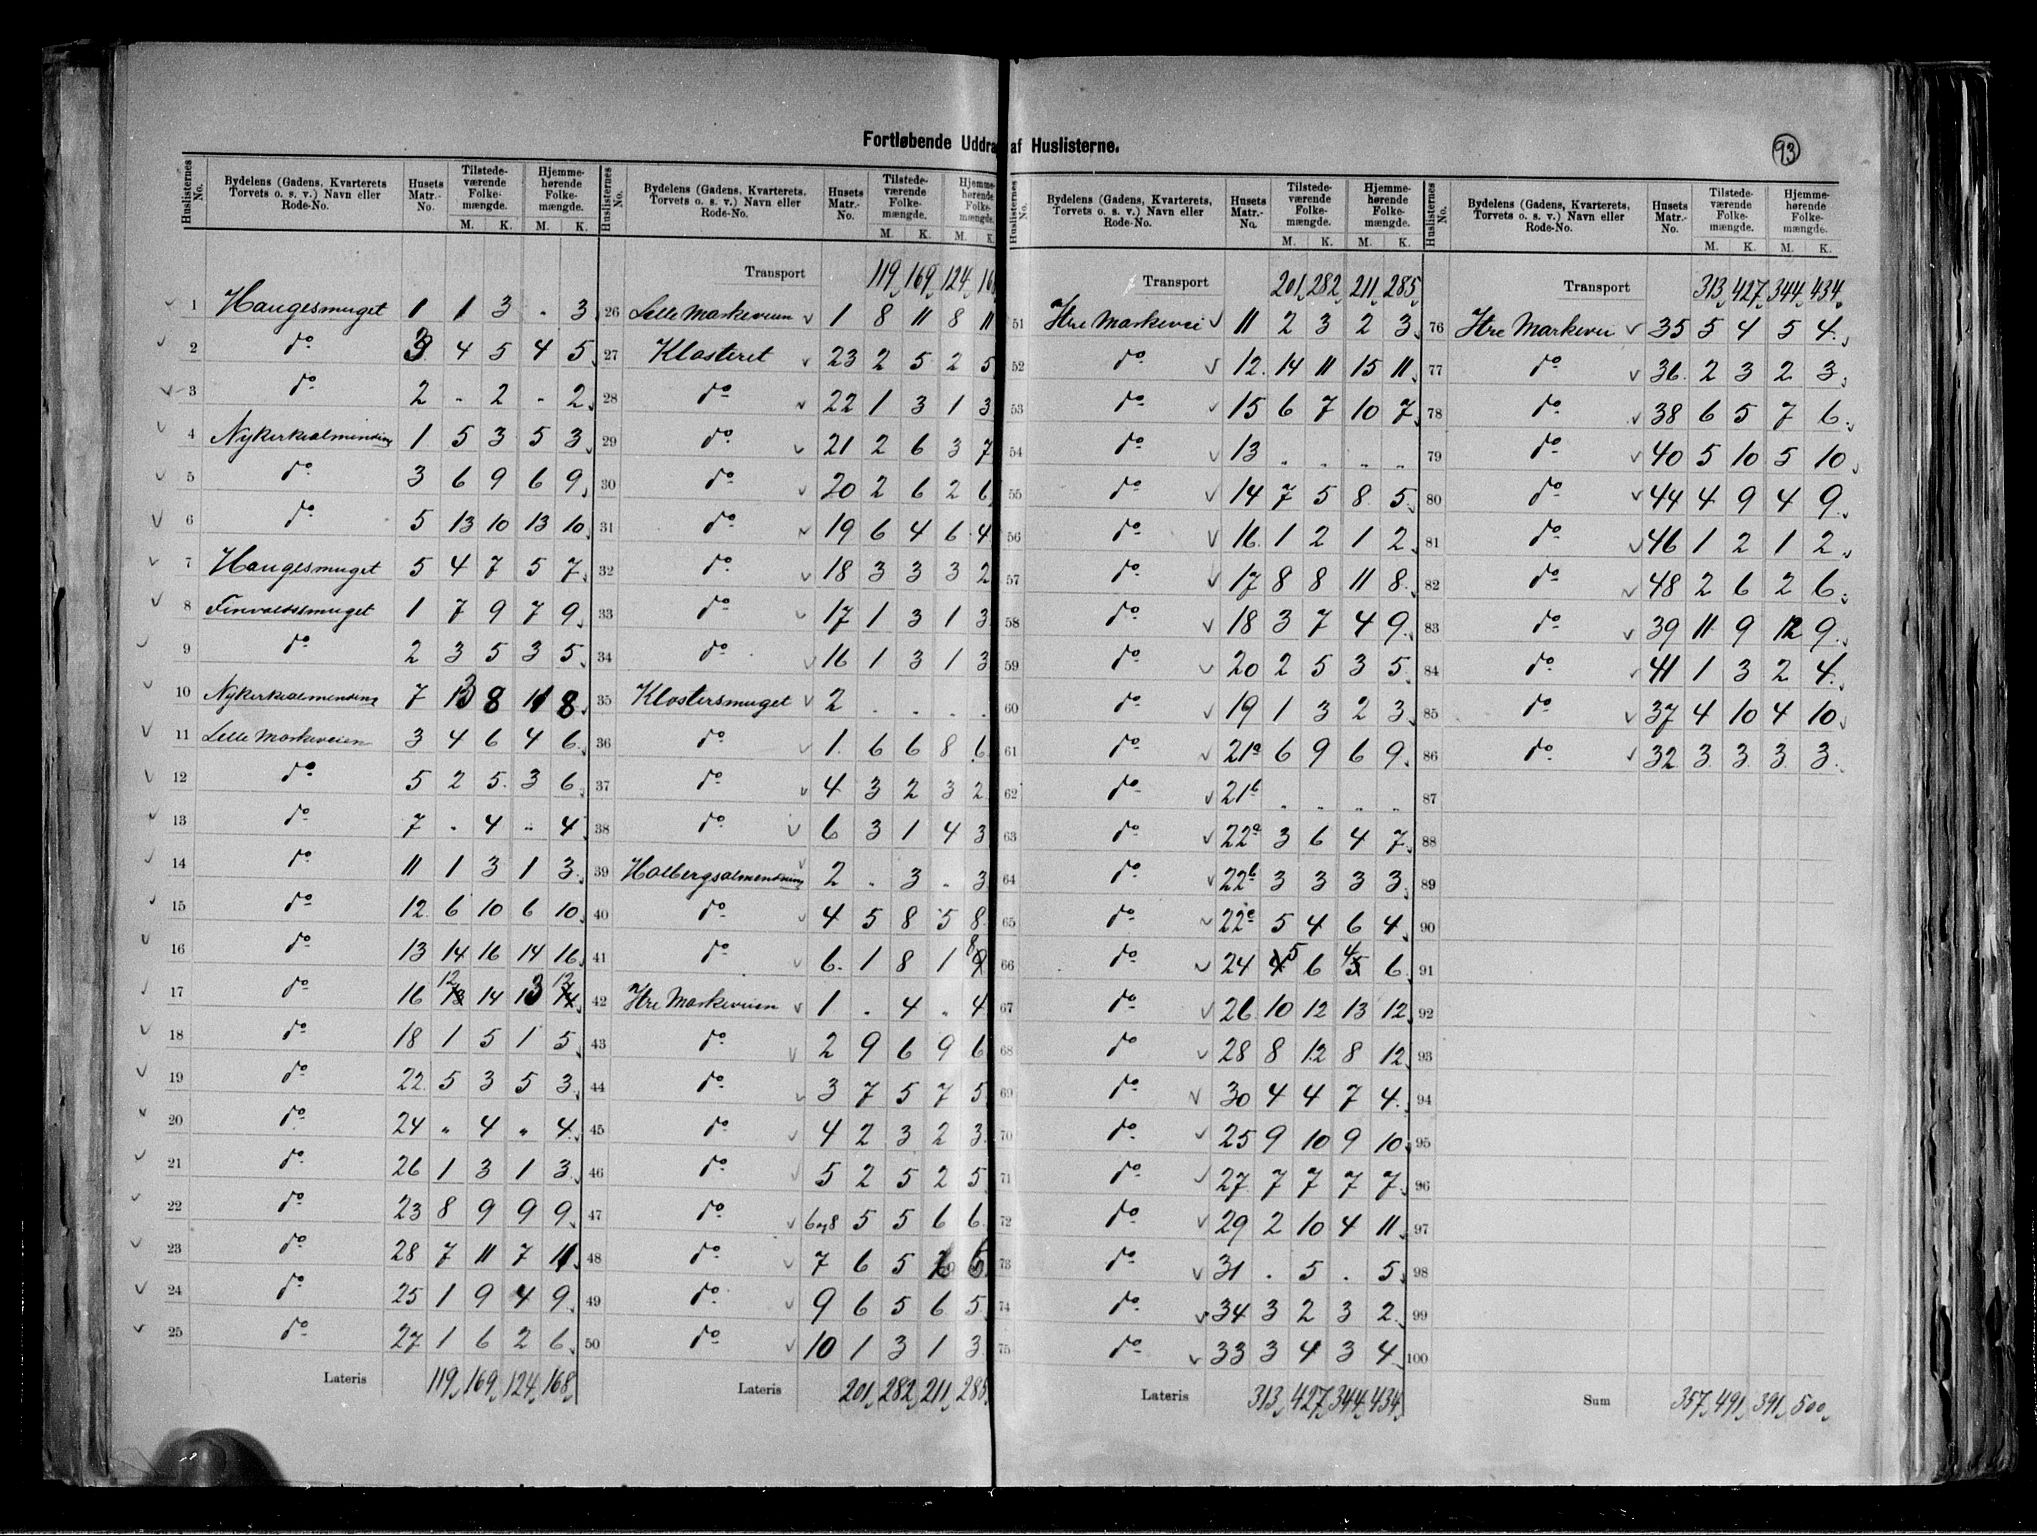 Fortløbende Uddra af Huslisterne.
93
Huslisternes No. Bydelens (Gadens, Kvarterets Torvets o. s. v.) Navn eller Rode-No. Husets Matr.-No. Tilstede-værende Folke-mængde. M. K. Hjemme-hørende Folke-mængde. M. K.
1 Haugesmuget 1 1 3 . 3
2 do 3 4 5 4 5
3 do 2 . 2 . 2
4 Nykerkealmending 1 5 3 5 3
5 do 3 6 9 6 9
6 do 5 13 10 13 10
7 Haugesmuget 5 4 7 5 7
8 Finvoldssmuget 1 7 9 7 9
9 do 2 3 5 3 5
10 Nykerkealmending 7 13 8 11 8
11 Lille Markeveien 3 4 6 4 6
12 do 5 2 5 3 6
13 do 7 . 4 . 4
14 do 11 1 3 1 3
15 do 12 6 10 6 10
16 do 13 14 16 14 16
17 do 16 12 14 13
18 do 18 1 5 1 5
19 do 22 5 3 5 3
20 do 24 " 4 " 4
21 do 26 1 3 1 3
22 do 23 8 9 9 9
23 do 28 7 11 7 11
24 do 25 1 9 4 9
25 do 27 1 6 2 6
Lateris 119 169 124 168
Huslisternes No. Bydelens (Gadens, Kvarterets, Torvets o. s. v.) Navn eller Rode-No. Husets Matr.-No. Tilstede-værende Folke-mængde. M. K. Hjemme-hørende Folke-mængde. M. K.
Transport 119 169 124 168
26 Lille Markeveien 1 8 11 8 11
27 Klosteret 23 2 5 2 5
28 do 22 1 3 1 3
29 do 21 2 6 3 7
30 do 20 2 6 2 6
31 do 19 6 4 6 4
32 do 18 3 3 3 2
33 do 17 1 3 1 3
34 do 16 1 3 1 3
35 Klostersmuget 2 . . . .
36 do 1 6 6 8 6
37 do 4 3 2 3 2
38 do 6 3 1 4 3
39 Holbergsalmending 2 . 3 . 3
40 do 4 5 8 5 8
41 do 6 1 8 1 8
42 Htre Markeveien 1 . 4 " 4
43 do 2 9 6 9 6
44 do 3 7 5 7 5
45 do 4 2 3 2 3
46 do 5 2 5 2 5
47 do 6 og 8 5 5 6 6
48 do 7 6 5 5
49 do 9 6 5 6 5
50 do 10 1 3 1 3
Lateris 201 282 211 285
Huslisternes No. Bydelens (Gadens, Kvarterets, Torvets o. s. v.) Navn eller Rode-No. Husets Matr.-No. Tilstede-værende Folke-mængde. M. K. Hjemme-hørende Folke-mængde. M. K.
Transport 201 282 211 285
51 Htre Markevei 11 2 3 2 3
52 do 12 14 11 15 11
53 do 15 6 7 10 7
54 do 13 " " " "
55 do 14 7 5 8 5
56 do 16 1 2 1 2
57 do 17 8 8 11 8
58 do 18 3 7 4 9
59 do 20 2 5 3 5
60 do 19 1 3 2 3
61 do 21a 6 9 6 9
62 do 21b " " " "
63 do 22a 3 6 4 7
64 do 22b 3 3 3 3
65 do 22c 5 4 6 4
66 do 24 5 6 4 6
67 do 26 10 12 13 12
68 do 28 8 12 8 12
69 do 30 4 4 7 4
70 do 25 9 10 9 10
71 do 27 7 7 7 7
72 do 29 2 10 4 11
73 do 31 . 5 . 5
74 do 34 3 2 3 2
75 do 33 3 4 3 4
Lateris 313 427 344 434
Huslisternes No. Bydelens (Gadens, Kvarterets, Torvets o. s. v.) Navn eller Rode-No. Husets Matr.-No. Tilstede-værende Folke-mængde. M. K. Hjemme-hørende Folke-mængde. M. K.
Transport 313 427 344 434
76 Htre Markevei 35 5 4 5 4
77 do 36 2 3 2 3
78 do 38 6 5 7 6
79 do 40 5 10 5 10
80 do 44 4 9 4 9
81 do 46 1 2 1 2
82 do 48 2 6 2 6
83 do 39 11 9 12 9
84 do 41 1 3 2 4
85 do 37 4 10 4 10
86 do 32 3 3 3 3
87
88
89
90
91
92
93
94
95
96
97
98
99
100
Sum 357 491 391 500